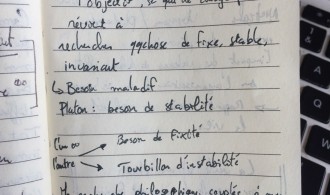 l'objectif, ce qui
revient à
rechercher qqchose de fixe, stable,
invariant
↳ Besoin maladif
Platon : besoin de stabilité
L'un ∞ → Besoin de fixité
l'autre → Tourbillon d'instabilité
philosophique, couplée à